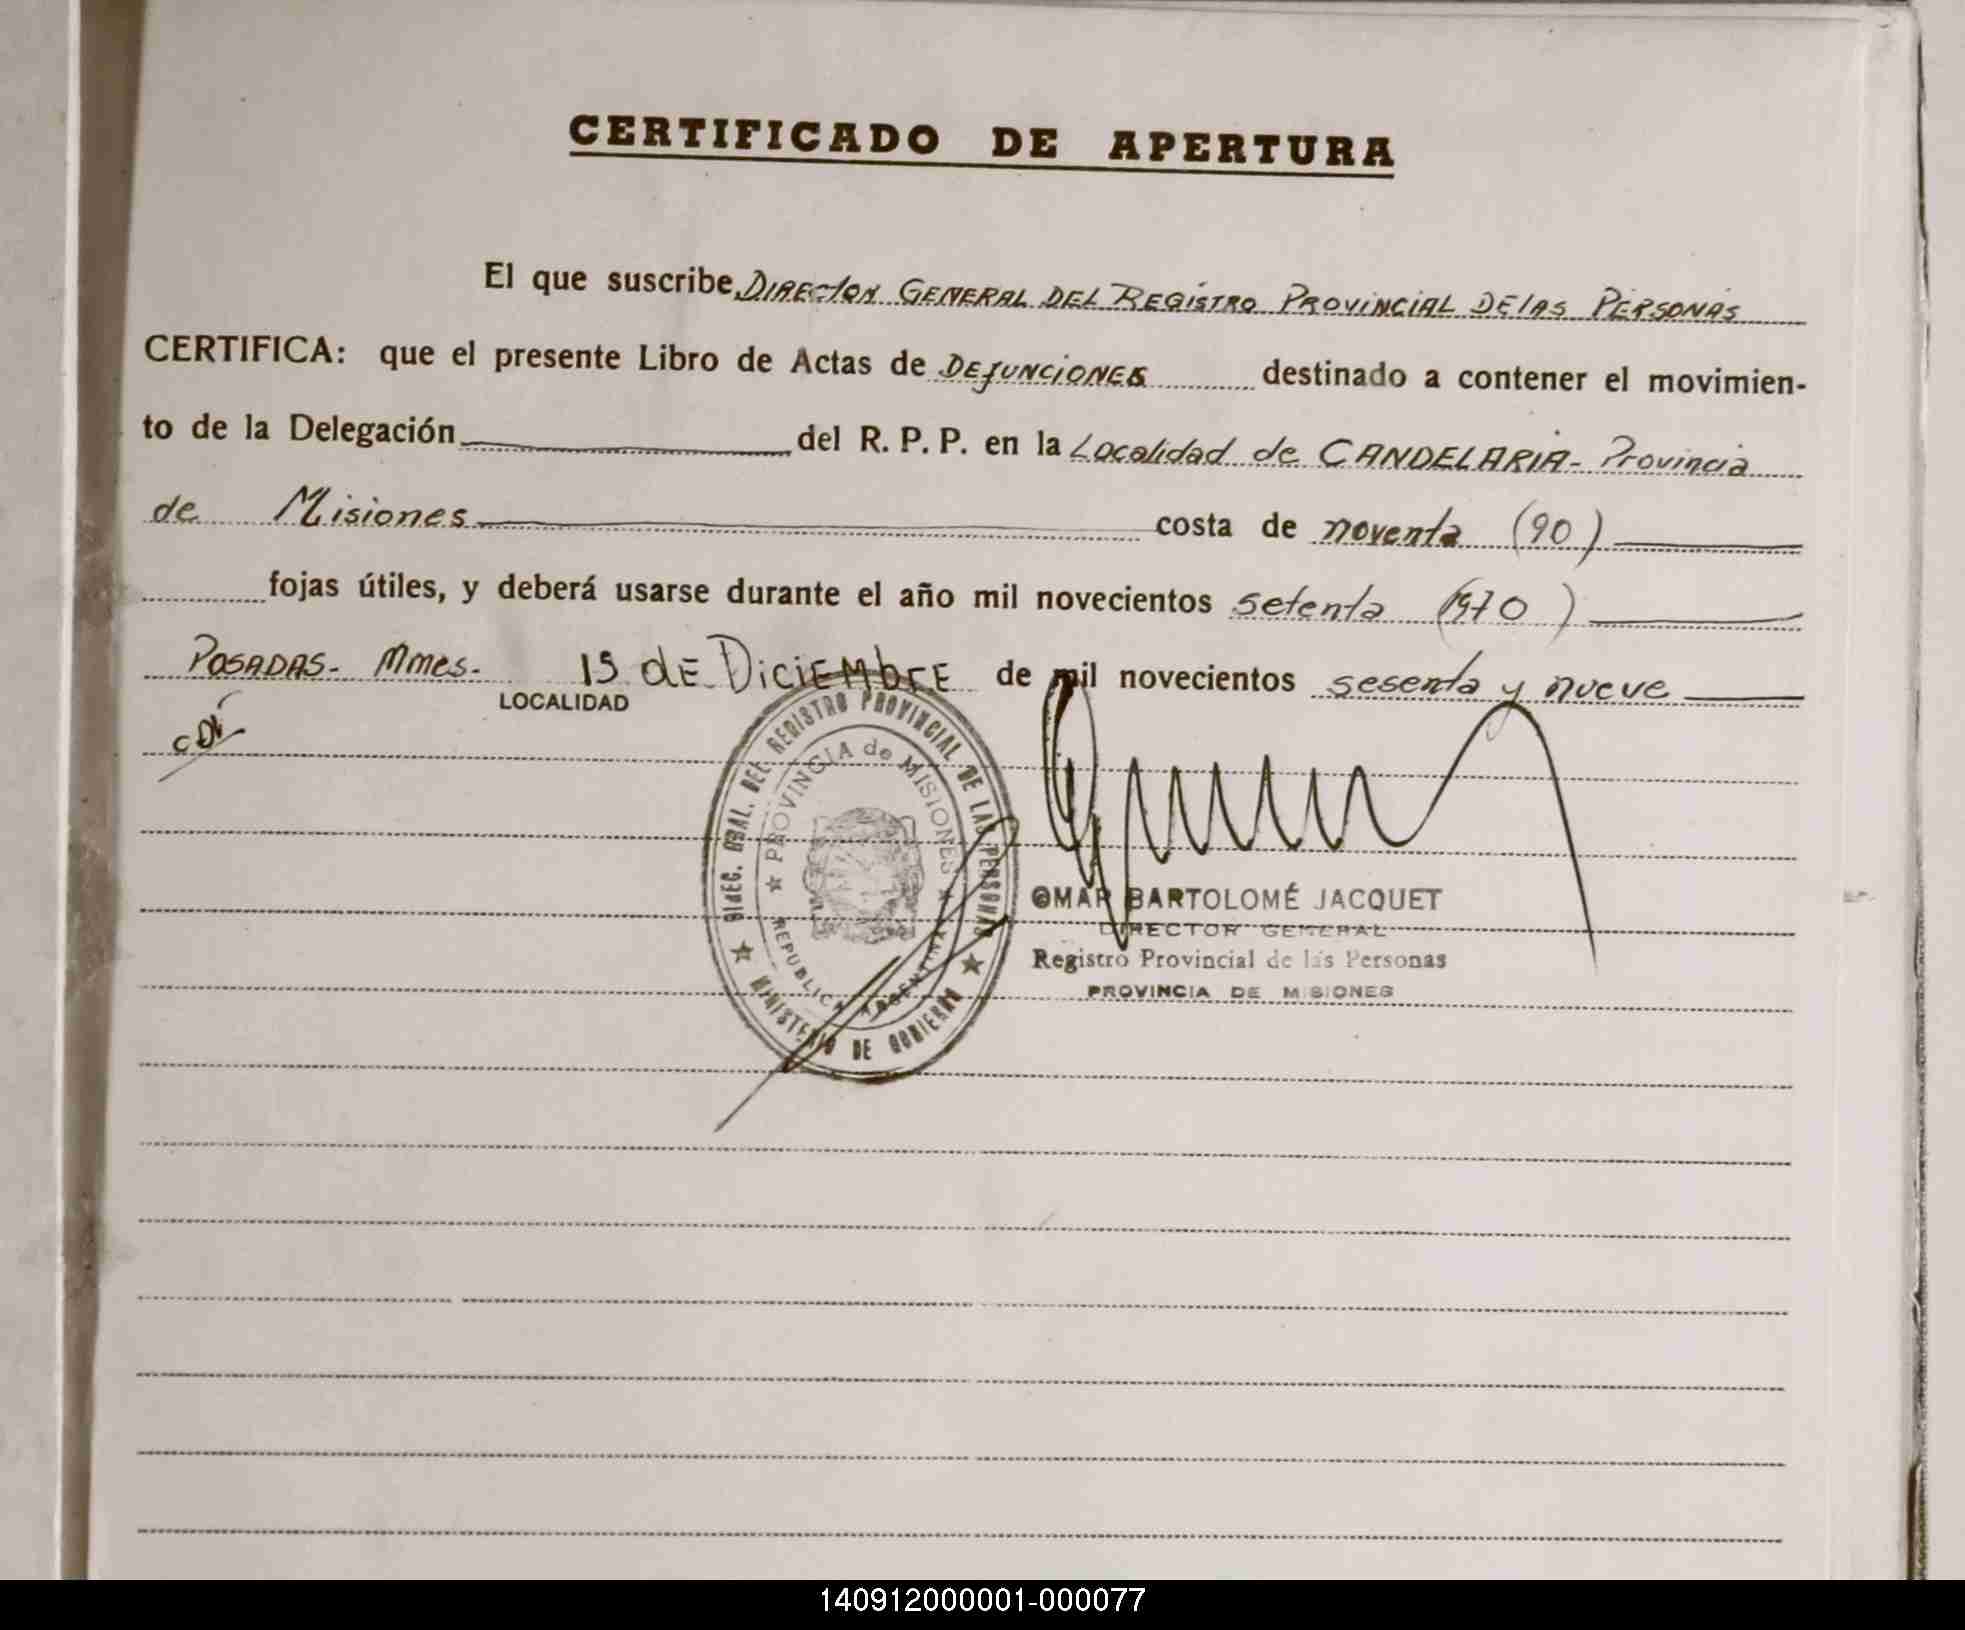 CERTIFICADO DE APERTURA
El que suscribe, DIRECTOR GENERAL DEL REGISTRO PROVINCIAL DE LAS PERSONAS
CERTIFICA: que el presente Libro de Actas de DEFUNCIONES destinado a contener el movimien-
to de la Delegación del R. P. P. en la Localidad de CANDELARIA- Provincia
de Misiones costa de noventa (90)
fojas útiles, y deberá usarse durante el año mil novecientos setenta (1970)
POSADAS- Mnes- 15 dE DiciEMbrE de mil novecientos sesenta y nueve
LOCALIDAD
DIREC. GRAL. DEL REGISTRO PROVINCIAL DE LAS PERSONAS
★ PROVINCIA de MISIONES ★
REPUBLICA ARGENTINA
★ MINISTERIO DE GOBIERNO ★
OMAR BARTOLOMÉ JACQUET
DIRECTOR GENERAL
Registro Provincial de las Personas
PROVINCIA DE MISIONES
140912000001-000077